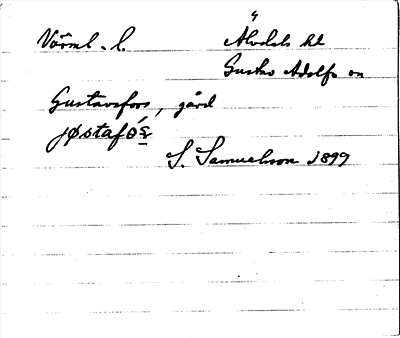 Värml. l.
Älvdals hd
Gustav Adolfs sn
Gustavsfors, gård
jøstafó̀s̠
S. Samuelsson 1899